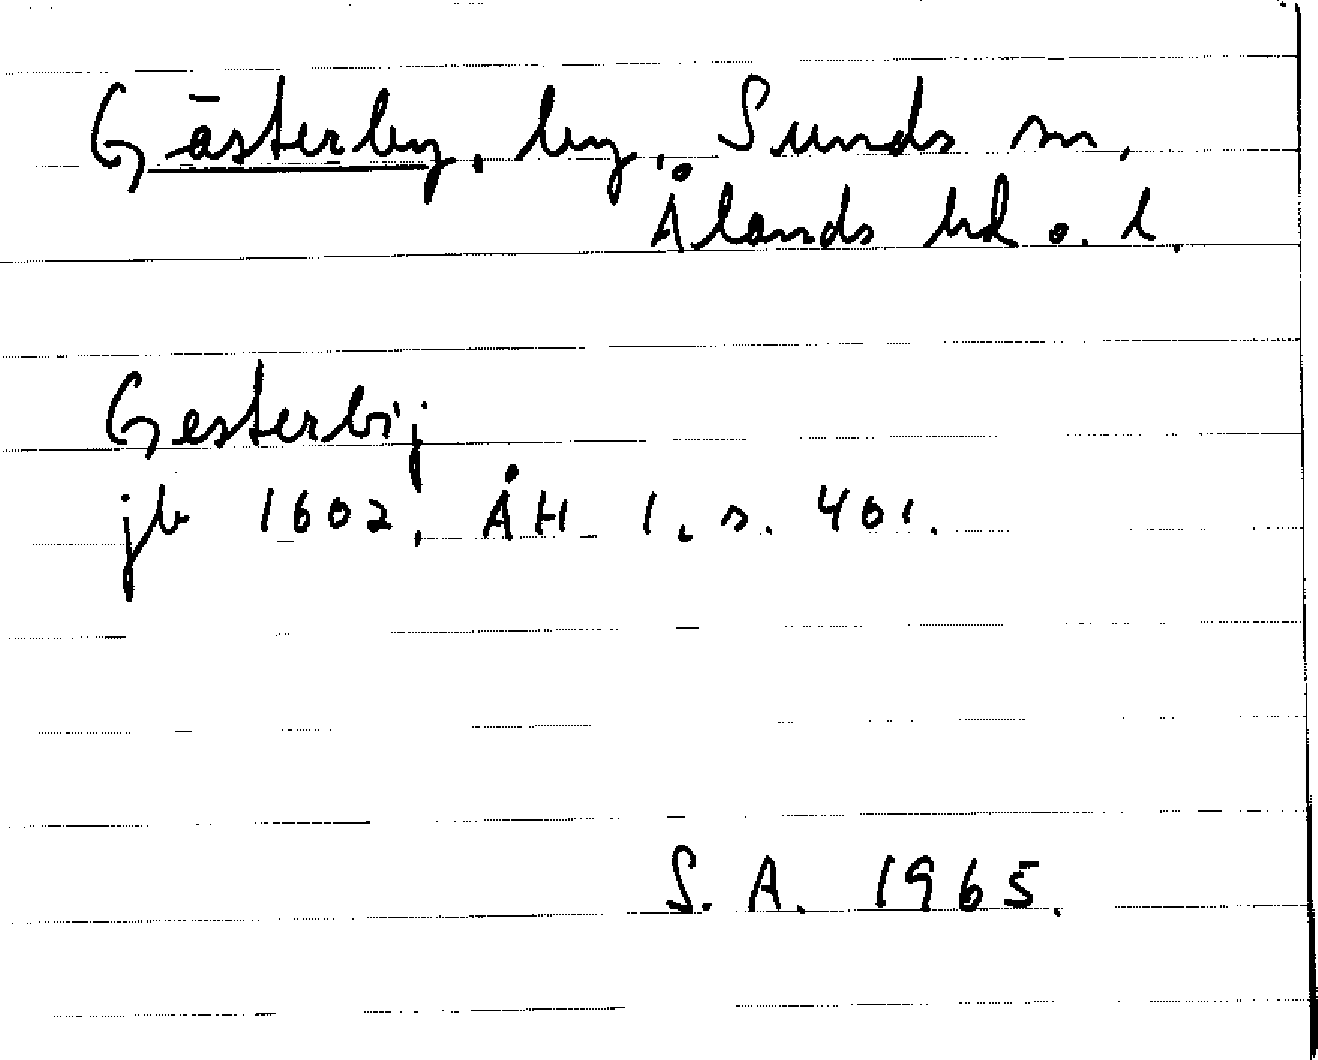 Gästerby, by, Sunds sn,
Ålands hd o. l.
Gesterbÿ
jb 1602, ÅH 1, s. 401.
S. A. 1965.